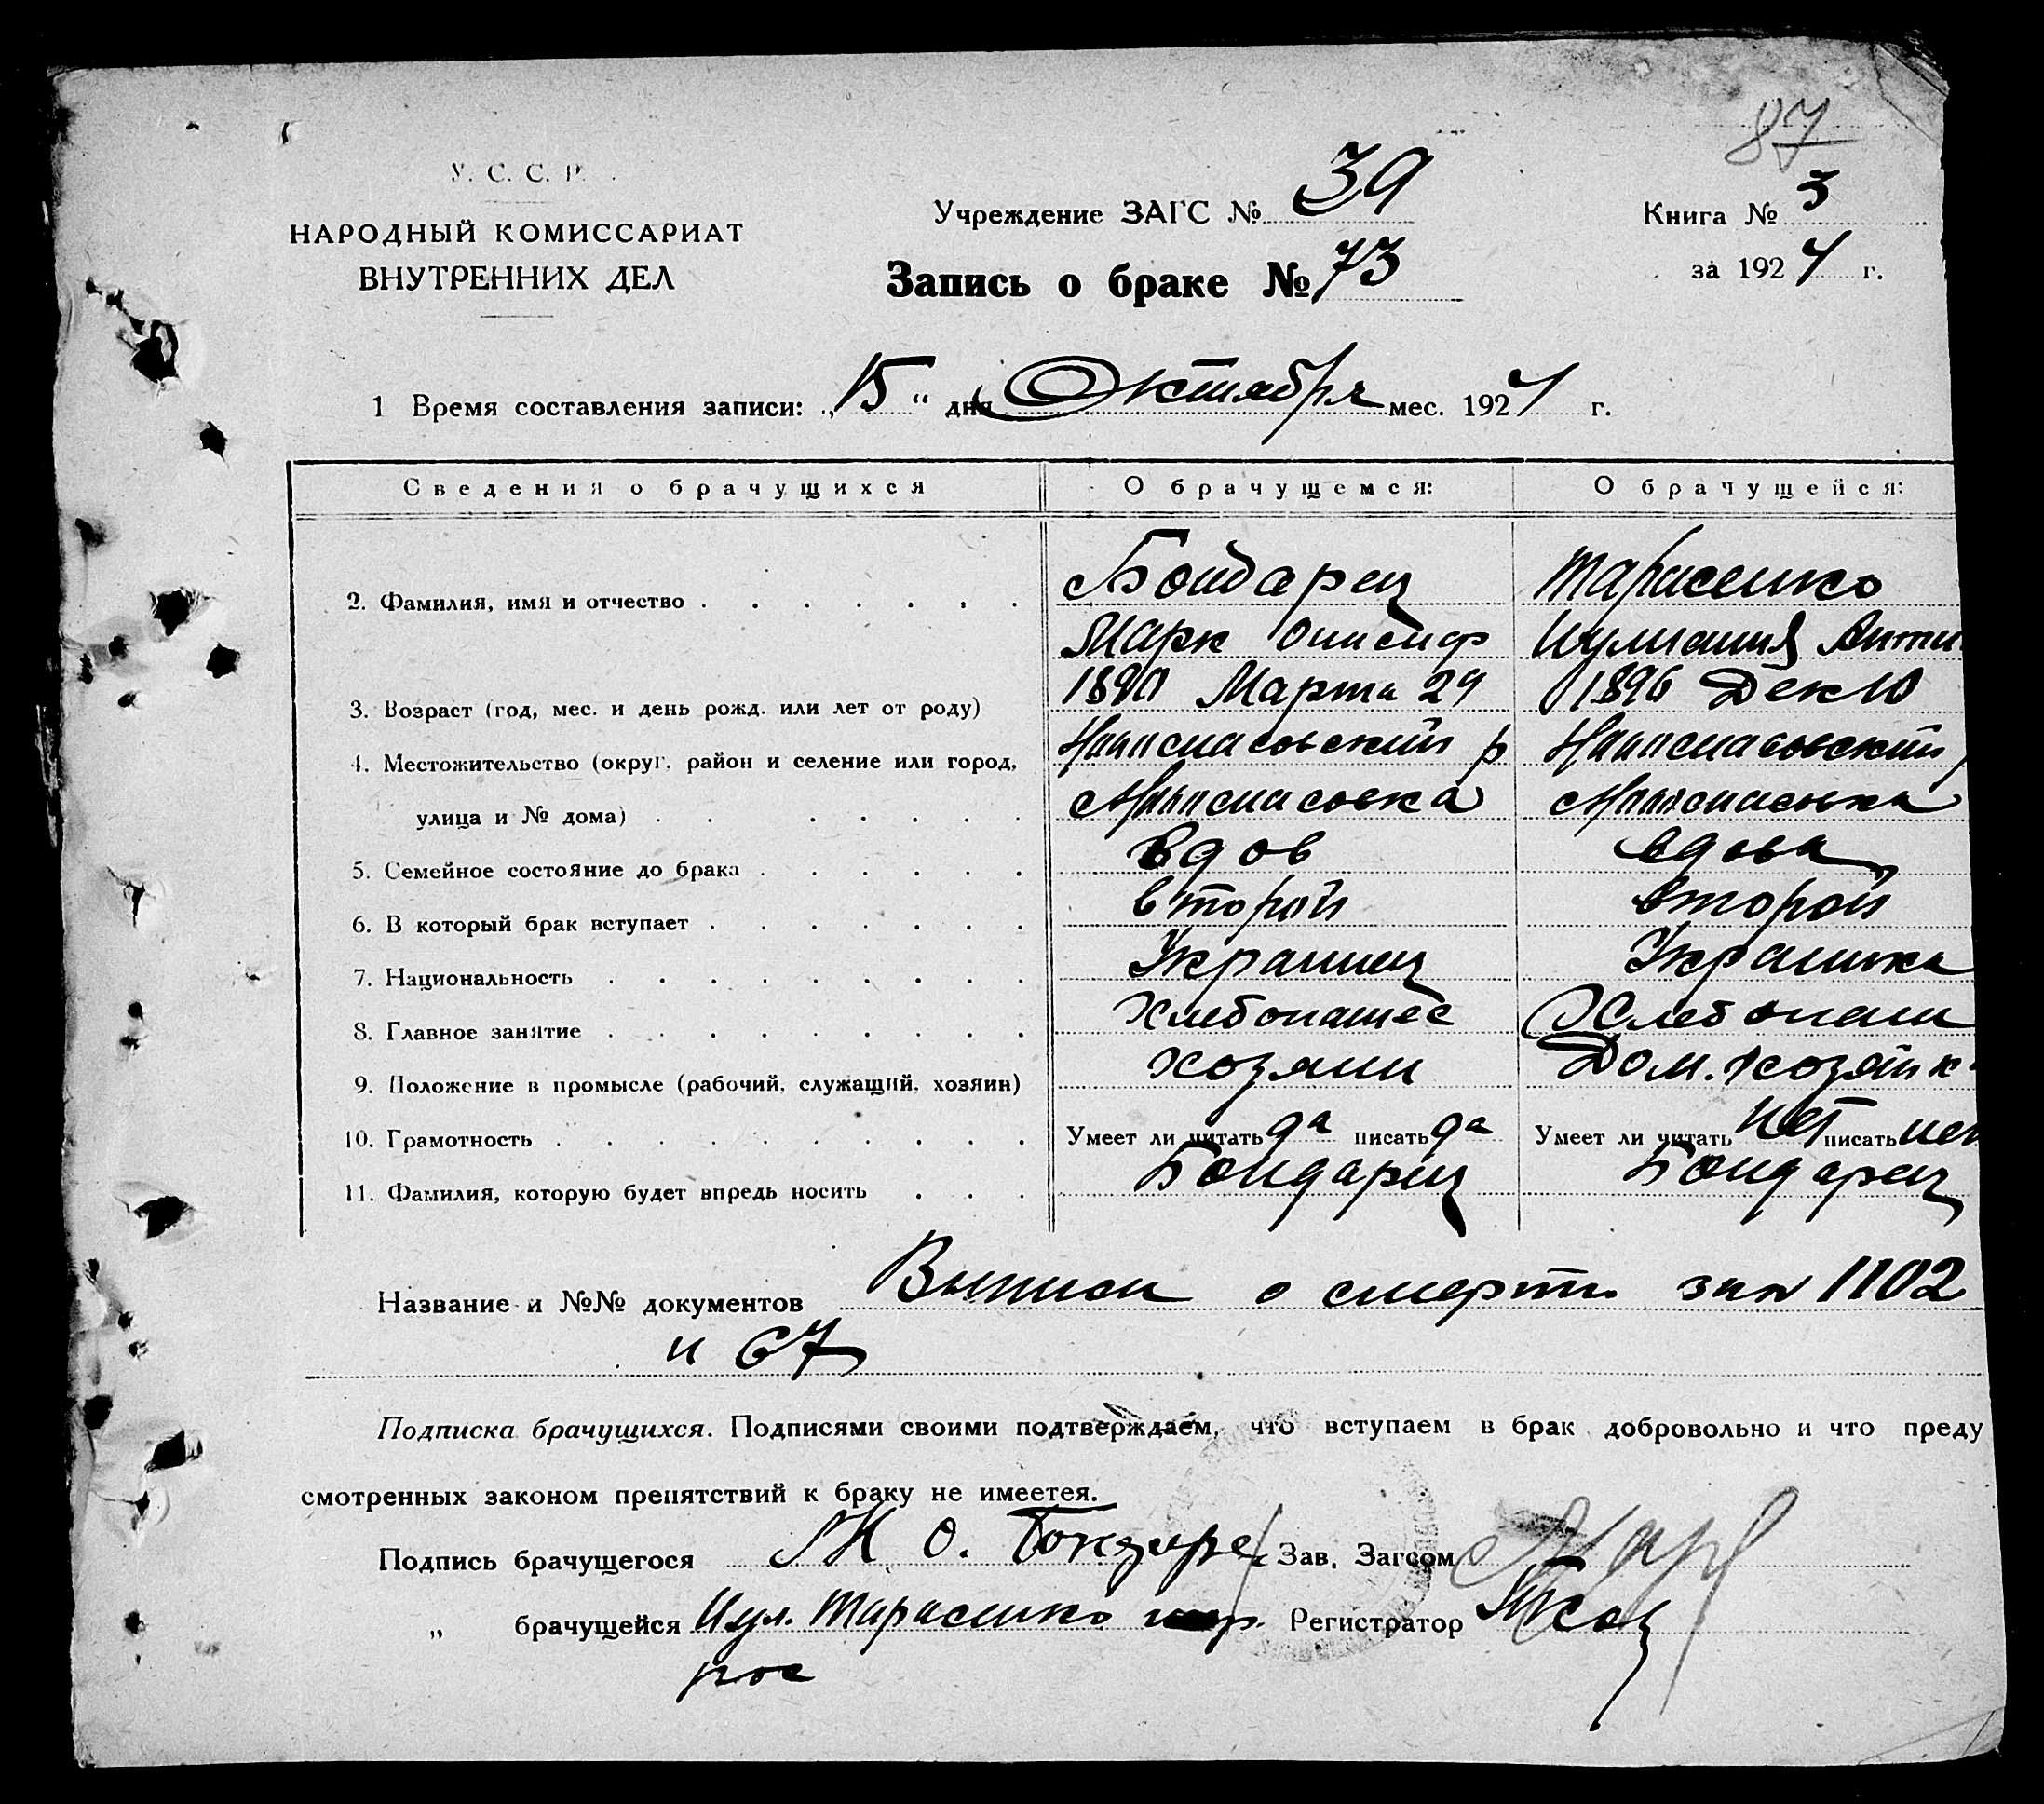 87
У. С. С. Р.
НАРОДНЫЙ КОМИССАРИАТ
ВНУТРЕННИХ ДЕЛ
Учреждение ЗАГС № 39
Запись о браке № 73
Книга № 3
за 1924 г.
1 Время составления записи: „15“ дня Октября мес. 1924 г.
Сведения о брачущихся О брачущемся: О брачущейся:
2. Фамилия, имя и отчество Бондарец Тарасенко
Марк Онисиф Иулиания Анти
3. Возраст (год, мес. и день рожд. или лет от роду) 1890 Марта 29 1896 Дек 10
4. Местожительство (округ, район и селение или город, р
улица и № дома)
5. Семейное состояние до брака вдов вдова
6. В который брак вступает второй второй
7. Национальность Украинец Украинка
8. Главное занятие Хлебопашес Хлебопаш
9. Положение в промысле (рабочий, служащий, хозяин) хозяин Дом. хозяйк
10. Грамотность Умеет ли читать да писать да Умеет ли читать нет писать нет
11. Фамилия, которую будет впредь носить Бондарец Бондарец
Название и №№ документов Выписи о смерти зап 1102
и 67
Подписка брачущихся. Подписями своими подтверждаем, что вступаем в брак добровольно и что преду
смотренных законом препятствий к браку не имеетея.
Подпись брачущегося М О. Бондаре Зав. Загсом
„ брачущейся Иул. Тарасенко Регистратор